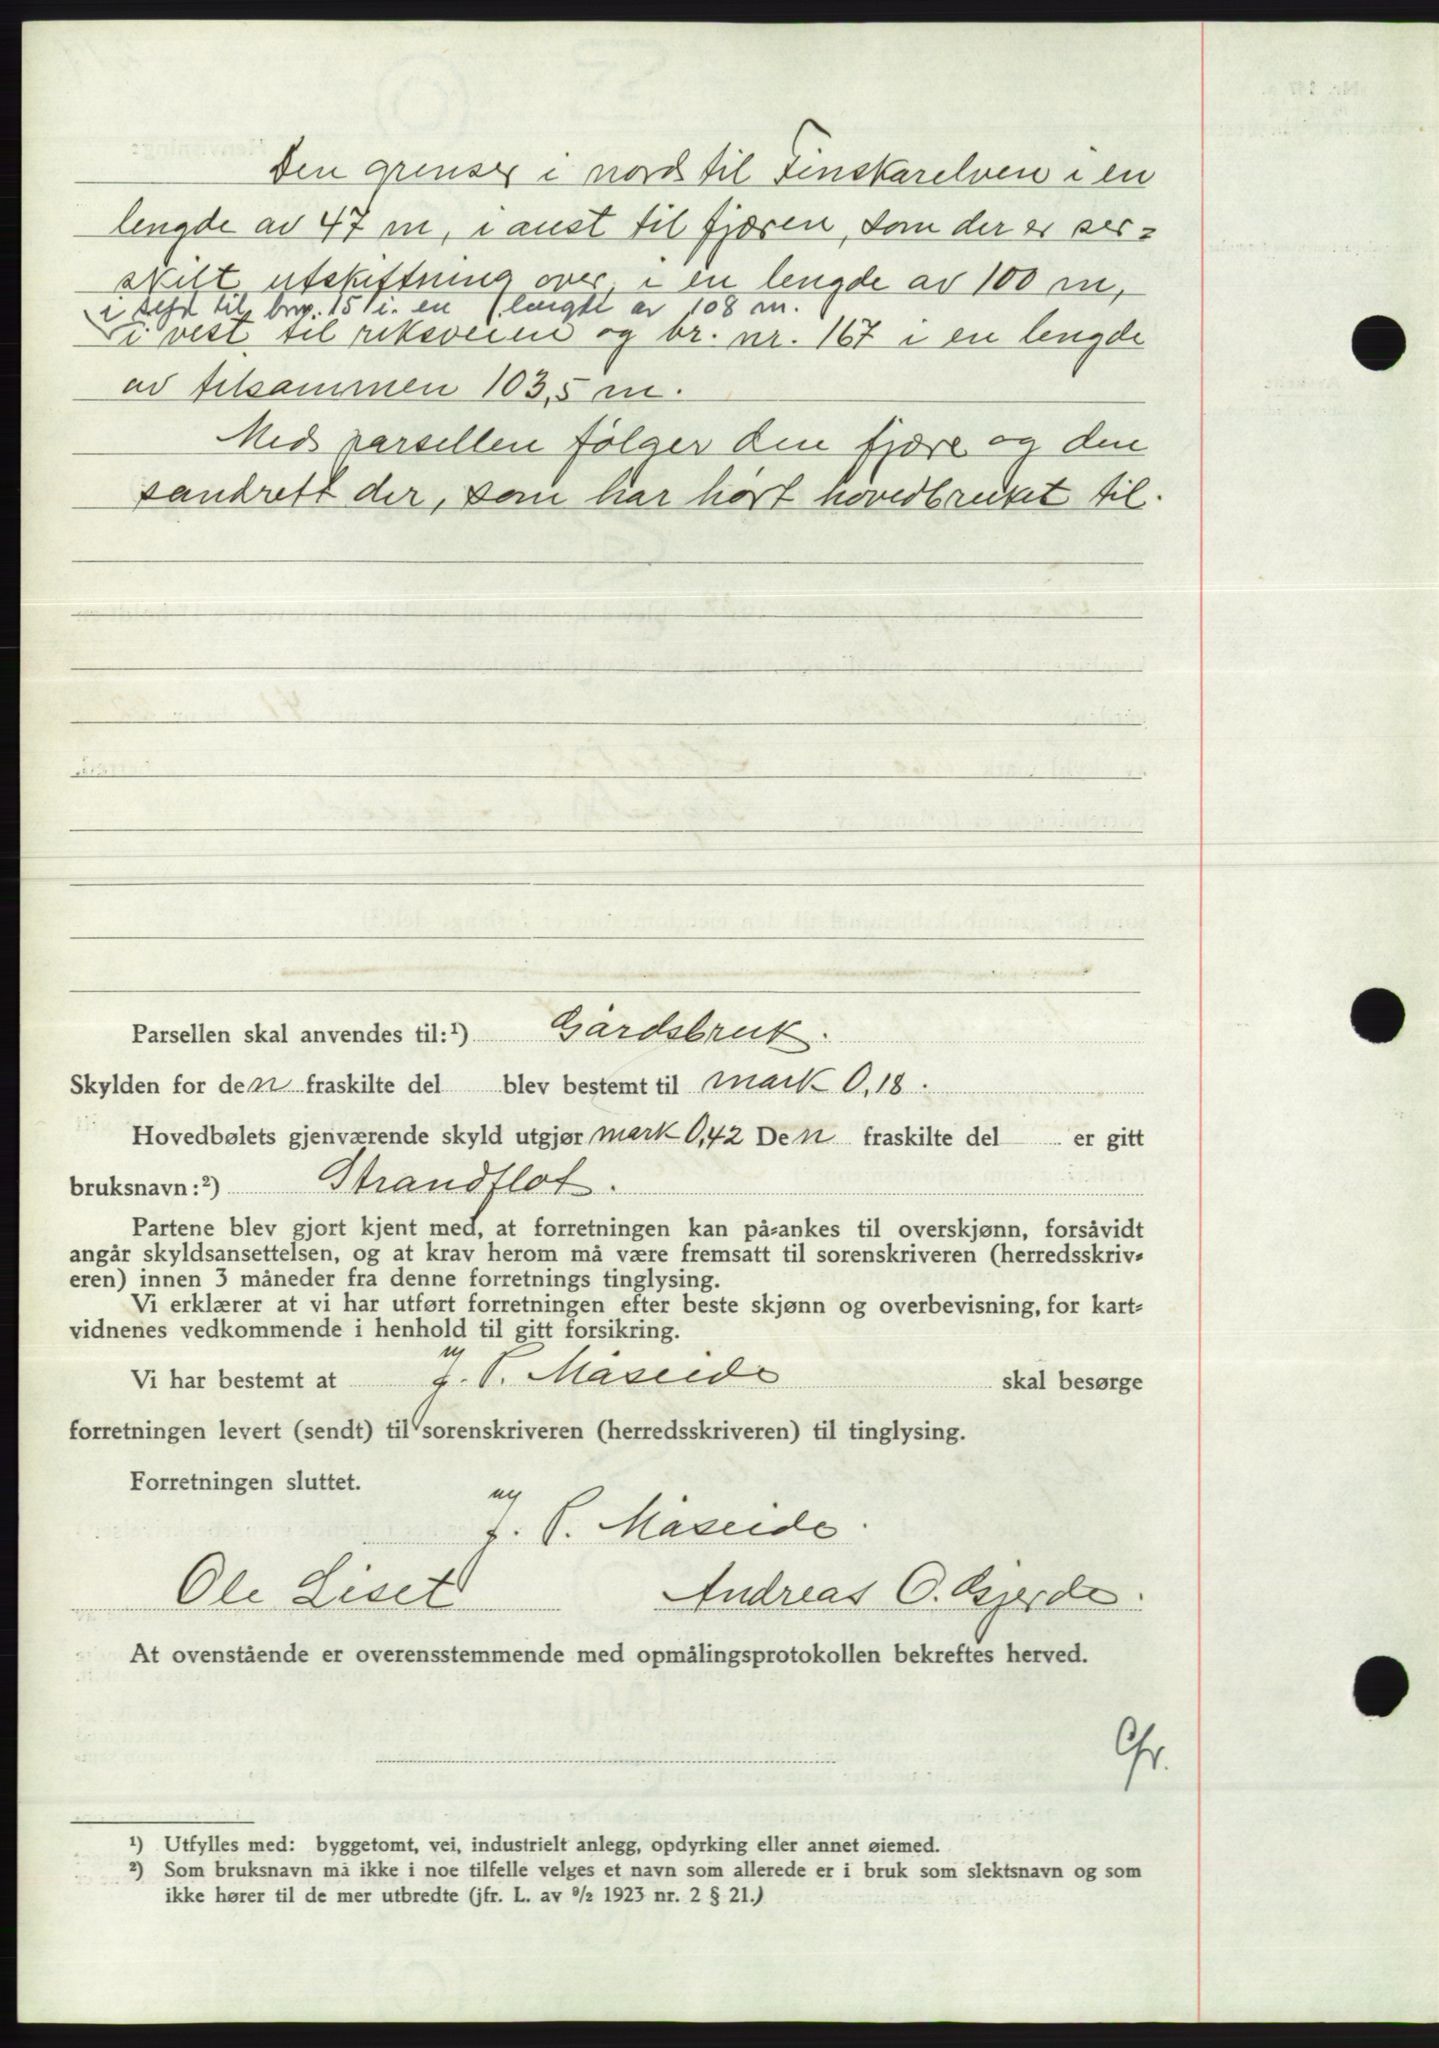 Den grenser i nord til Finskarelven i en
lengde av 47 m, i aust til fjæren, som der er ser=
skilt utskiftning over, i en lengde av 100 m,
i syd til bnr. 15 i en lengde av 108 m.
i vest til riksveien og br. nr. 167 i en lengde
av tilsammen 103,5 m.
Med parsellen følger den fjære og den
sandrett der, som har hørt hovedbruket til.
Parsellen skal anvendes til:¹) Gårdsbruk.
Skylden for den fraskilte del blev bestemt til mark 0,18.
Hovedbølets gjenværende skyld utgjør mark 0,42 Den fraskilte del er gitt
bruksnavn:²) Strandflot.
Partene blev gjort kjent med, at forretningen kan på=ankes til overskjønn, forsåvidt
angår skyldsansettelsen, og at krav herom må være fremsatt til sorenskriveren (herredsskriv=
eren) innen 3 måneder fra denne forretnings tinglysing.
Vi erklærer at vi har utført forretningen efter beste skjønn og overbevisning, for kart=
vidnenes vedkommende i henhold til gitt forsikring.
Vi har bestemt at J. P. Måseide skal besørge
forretningen levert (sendt) til sorenskriveren (herredsskriveren) til tinglysing.
Forretningen sluttet.
J. P. Måseide.
Ole Liset Andreas O. Gjerde.
At ovenstående er overensstemmende med opmålingsprotokollen bekreftes herved.
Cfr.
¹) Utfylles med: byggetomt, vei, industrielt anlegg, opdyrking eller annet øiemed.
²) Som bruksnavn må ikke i noe tilfelle velges et navn som allerede er i bruk som slektsnavn og som
ikke hører til de mer utbredte (jfr. L. av ⁹/₂ 1923 nr. 2 § 21.)